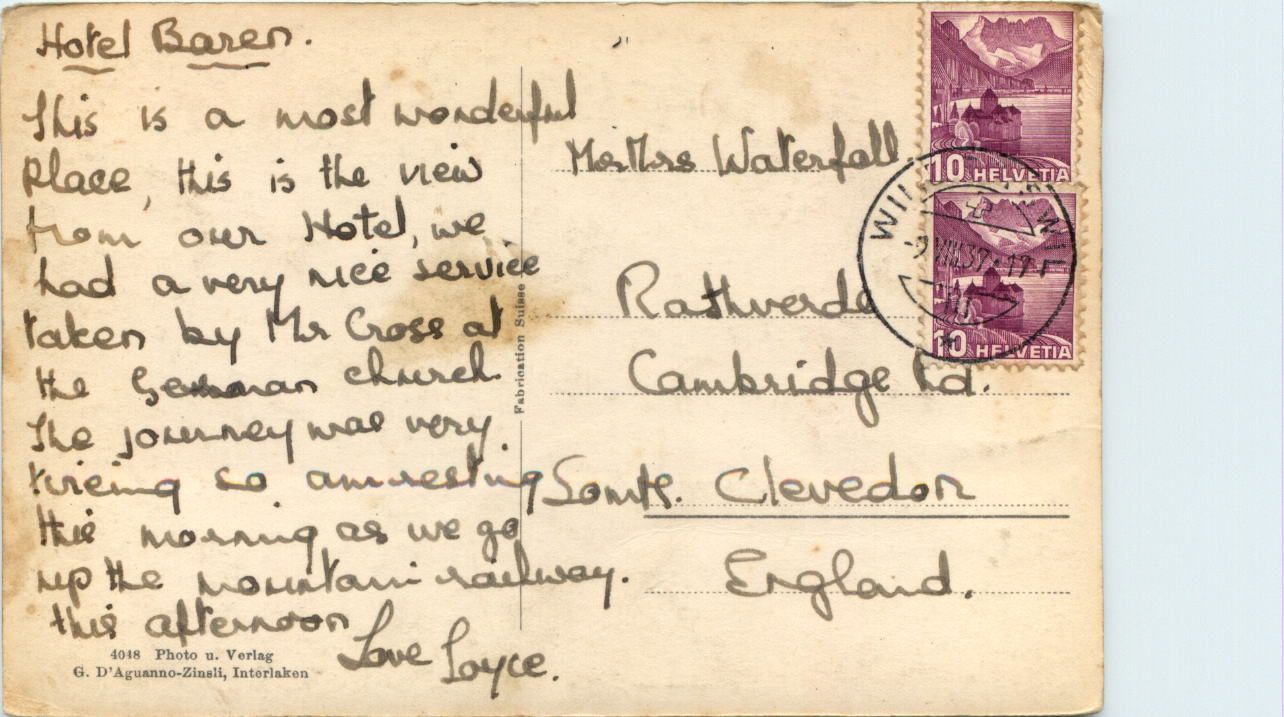 Hotel Baren.
This is a most wonderful
place, this is the view
from our Hotel, we
had a very nice service
taken by Mr Cross at
the German church.
The journey was very
tireing so am resting
this morning as we go
up the mountain railway.
this afternoon
Love Joyce.
4048 Photo u. Verlag
G. D'Aguanno-Zinsli, Interlaken
Fabrication Suisse
Mr Mrs Waterfall
Rathverde
Cambridge Rd.
Somt. Clevedon
England.
10 HELVETIA
10 HELVETIA
WILDERSWIL
-9.VIII.39.-17